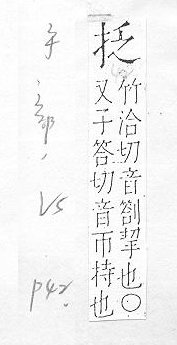 抸
竹洽切音劄挈也〇
又子答切音帀持也
手部
p42.